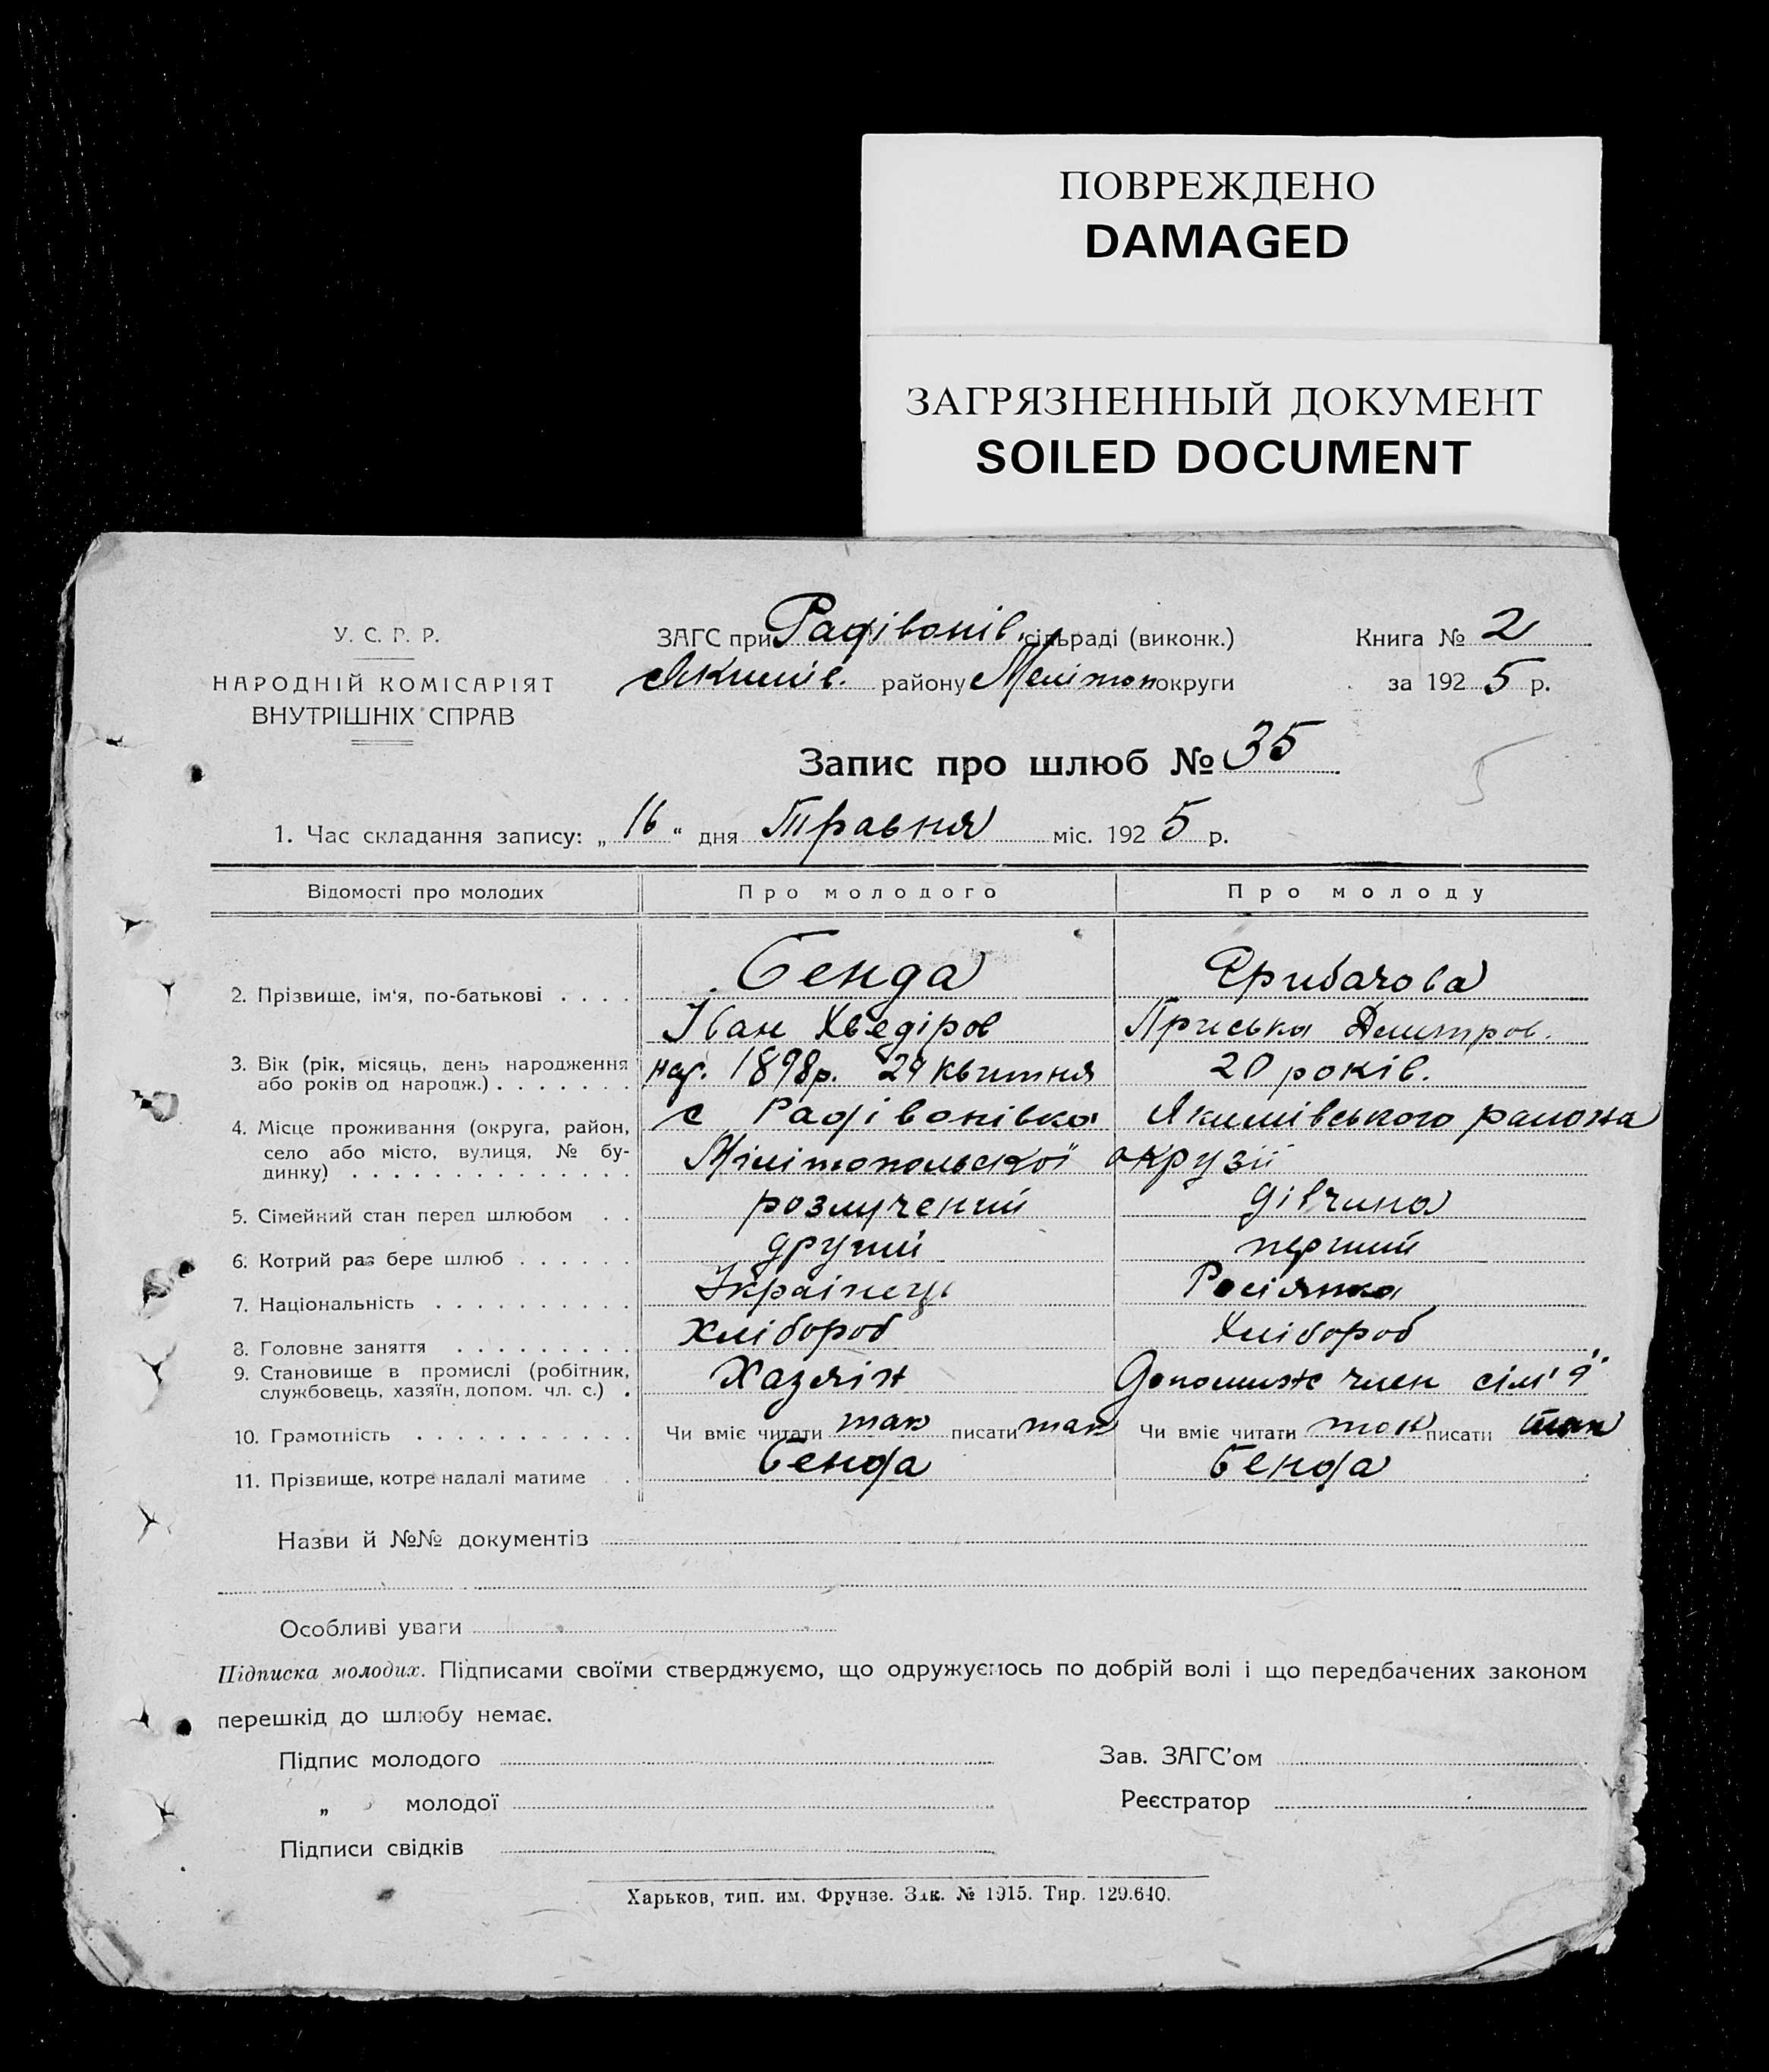 ПОВРЕЖДЕНО
DAMAGED
ЗАГРЯЗНЕННЫЙ ДОКУМЕНТ
SOILED DOCUMENT
У. С. Р. Р.
НАРОДНІЙ КОМІСАРІЯТ
ВНУТРІШНІХ СПРАВ
ЗАГС при Радівонів. сільраді (виконк.)
Якимів. району Мелітоп округи
Книга № 2
за 1925 р.
Запис про шлюб № 35
5
1. Час складання запису: „16“ дня Травня міс. 1925 р.
Відомості про молодих Про молодого Про молоду
2. Прізвище, ім'я, по-батькові . . . . Бенда
Іван Хведіров Пріська Дмитров.
3. Вік (рік, місяць, день народження або років од народж.) . . . . . . . нар. 1898р. 29 квитня 20 років.
4. Місце проживання (округа, район, село або місто, вулиця, № будинку) . . . . . . . . . . . . . с Радівонівка Якимівського района
Мілітопольскої округії
5. Сімейний стан перед шлюбом . . розлучений дівчина
6. Котрий раз бере шлюб . . . . . . другий перший
7. Національність . . . . . . . . . . Українець Росіянка
8. Головне заняття . . . . . . . . . Хлібороб Хлібороб
9. Становище в промислі (робітник, службовець, хазяїн, допом. чл. с.) . Хазяін Допомиж член сім'ї
10. Грамотність . . . . . . . . . . . Чи вміє читати так писати так Чи вміє читати так писати так
11. Прізвище, котре надалі матиме . Бенда Бенда
Назви й №№ документів
Особливі уваги
Підписка молодих. Підписами своїми стверджуємо, що одружуємось по добрій волі і що передбачених законом
перешкід до шлюбу немає.
Підпис молодого Зав. ЗАГС'ом
„ молодої Реєстратор
Підписи свідків
Харьков, тип. им. Фрунзе. Зак. № 1915. Тир. 129.640.